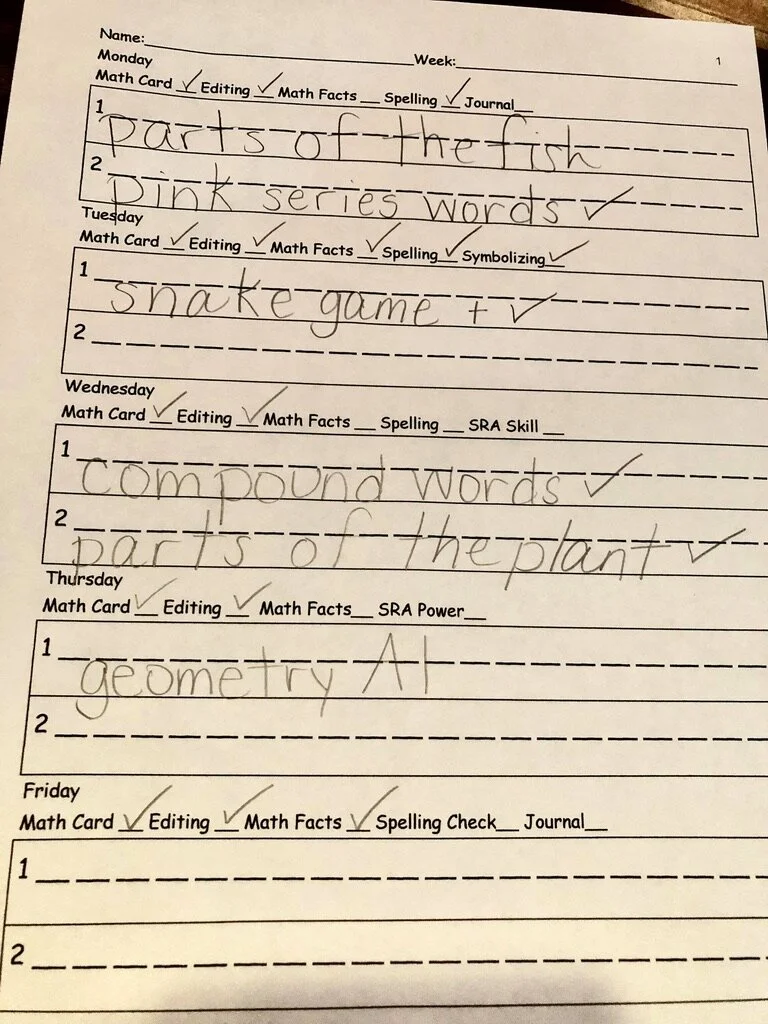 Name:____________ Week:____________ 1
Monday
Math Card ✓ Editing ✓ Math Facts __ Spelling ✓ Journal__
1 parts of the fish
2 pink series words ✓
Tuesday
Math Card ✓ Editing ✓ Math Facts ✓ Spelling ✓ Symbolizing ✓
1 snake game + ✓
2
Wednesday
Math Card ✓ Editing ✓ Math Facts __ Spelling __ SRA Skill __
1 compound words ✓
2 parts of the plant ✓
Thursday
Math Card ✓ Editing ✓ Math Facts__ SRA Power__
1 geometry A1
2
Friday
Math Card ✓ Editing ✓ Math Facts ✓ Spelling Check__ Journal__
1
2